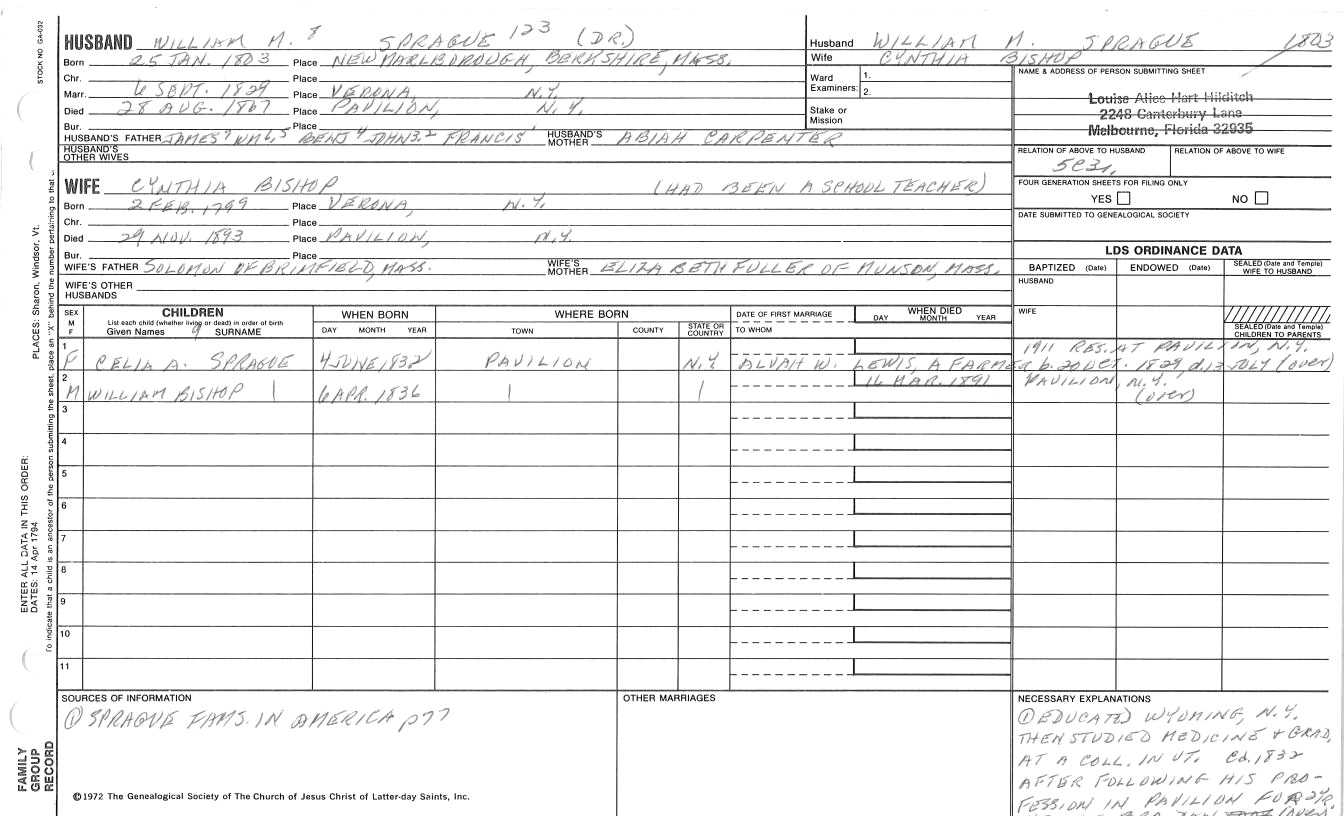 STOCK NO GA-032
HUSBAND WILLIAM M. 8 SPRAGUE 123 (DR.)
Husband WILLIAM M. SPRAGUE 1803
Wife CYNTHIA BISHOP
Born 25 JAN. 1803 Place NEW MARLBOROUGH, BERKSHIRE, MASS.
Chr. Place
Marr. 6 SEPT. 1829 Place VERONA, N.Y.
Died 28 AUG. 1867 Place PAVILION, N.Y.
Bur. Place
Ward Examiners: 1. 2.
Stake or Mission
NAME & ADDRESS OF PERSON SUBMITTING SHEET
Louise Alice Hart Hilditch
2248 Canterbury Lane
Melbourne, Florida 32935
HUSBAND'S FATHER JAMES 7 WM 6,5 BENJ 4 JOHN 3,2 FRANCIS 1 HUSBAND'S MOTHER ABIAH CARPENTER
HUSBAND'S OTHER WIVES
RELATION OF ABOVE TO HUSBAND RELATION OF ABOVE TO WIFE
WIFE CYNTHIA BISHOP (HAD BEEN A SCHOOL TEACHER)
FOUR GENERATION SHEETS FOR FILING ONLY
YES NO
Born 2 FEB. 1799 Place VERONA, N.Y.
Chr. Place
Died 29 NOV. 1893 Place PAVILION, N.Y.
Bur. Place
DATE SUBMITTED TO GENEALOGICAL SOCIETY
LDS ORDINANCE DATA
WIFE'S FATHER SOLOMON OF BRIMFIELD, MASS. WIFE'S MOTHER ELIZABETH FULLER OF MUNSON, MASS.
WIFE'S OTHER HUSBANDS
BAPTIZED (Date) ENDOWED (Date) SEALED (Date and Temple) WIFE TO HUSBAND
HUSBAND
WIFE
SEALED (Date and Temple) CHILDREN TO PARENTS
SEX M F CHILDREN WHEN BORN WHERE BORN DATE OF FIRST MARRIAGE WHEN DIED
List each child (whether living or dead) in order of birth
Given Names 9 SURNAME DAY MONTH YEAR TOWN COUNTY STATE OR COUNTRY TO WHOM DAY MONTH YEAR
1 1911 RES. AT PAVILION, N.Y.
F CELIA A. SPRAGUE 4 JUNE, 1832 PAVILION N.Y. ALVAH W. LEWIS, A FARMER b. 20 OCT. 1829, d. 13 JULY (over)
2 16 MAR. 1891 PAVILION, N.Y.
M WILLIAM BISHOP | 6 APR. 1836 | | (over)
3
4
5
6
7
8
9
10
11
PLACES: Sharon, Windsor, Vt.
ENTER ALL DATA IN THIS ORDER:
DATES: 14 Apr 1794
To indicate that a child is an ancestor of the person submitting the sheet, place an "X" behind the number pertaining to that
FAMILY GROUP RECORD
SOURCES OF INFORMATION
① SPRAGUE FAMS. IN AMERICA p77
©1972 The Genealogical Society of The Church of Jesus Christ of Latter-day Saints, Inc.
OTHER MARRIAGES
NECESSARY EXPLANATIONS
① EDUCATED WYOMING, N.Y.
THEN STUDIED MEDICINE & GRAD,
AT A COLL. IN VT. Cd. 1832
AFTER FOLLOWING HIS PRO-
FESSION IN PAVILION FOR 24 YR.
(over)